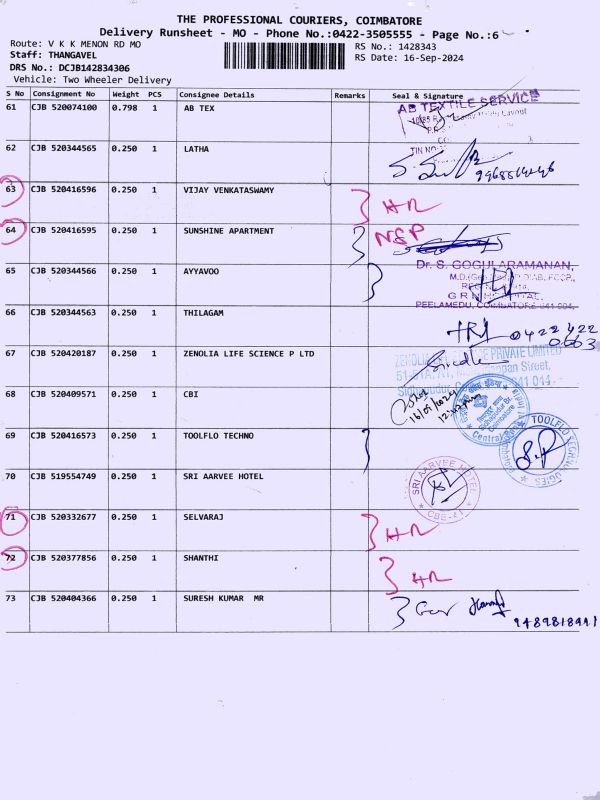 THE PROFESSIONAL COURIERS, COIMBATORE
Delivery Runsheet - MO - Phone No.:0422-3505555 - Page No.:6
Route: V K K MENON RD MO
RS No.: 1428343
Staff: THANGAVEL
RS Date: 16-Sep-2024
DRS No.: DCJB142834306
Vehicle: Two Wheeler Delivery
S No Consignment No Weight PCS Consignee Details Remarks Seal & Signature
61 CJB 520074100 0.798 1 AB TEX
AB TEXTILE SERVICE
Layout
62 CJB 520344565 0.250 1 LATHA
TIN NO
63 CJB 520416596 0.250 1 VIJAY VENKATASWAMY
64 CJB 520416595 0.250 1 SUNSHINE APARTMENT
NSP
65 CJB 520344566 0.250 1 AYYAVOO
Dr. S. GOGULARAMANAN,
PEELAMEDU, COIMBATORE-641 004.
66 CJB 520344563 0.250 1 THILAGAM
0422 422
67 CJB 520420187 0.250 1 ZENOLIA LIFE SCIENCE P LTD
PRIVATE LIMITED
Street,
68 CJB 520409571 0.250 1 CBI
69 CJB 520416573 0.250 1 TOOLFLO TECHNO
TOOLFLO TECHNOLOGIES
70 CJB 519554749 0.250 1 SRI AARVEE HOTEL
SRI AARVEE HOTEL
71 CJB 520332677 0.250 1 SELVARAJ
72 CJB 520377856 0.250 1 SHANTHI
73 CJB 520404366 0.250 1 SURESH KUMAR MR